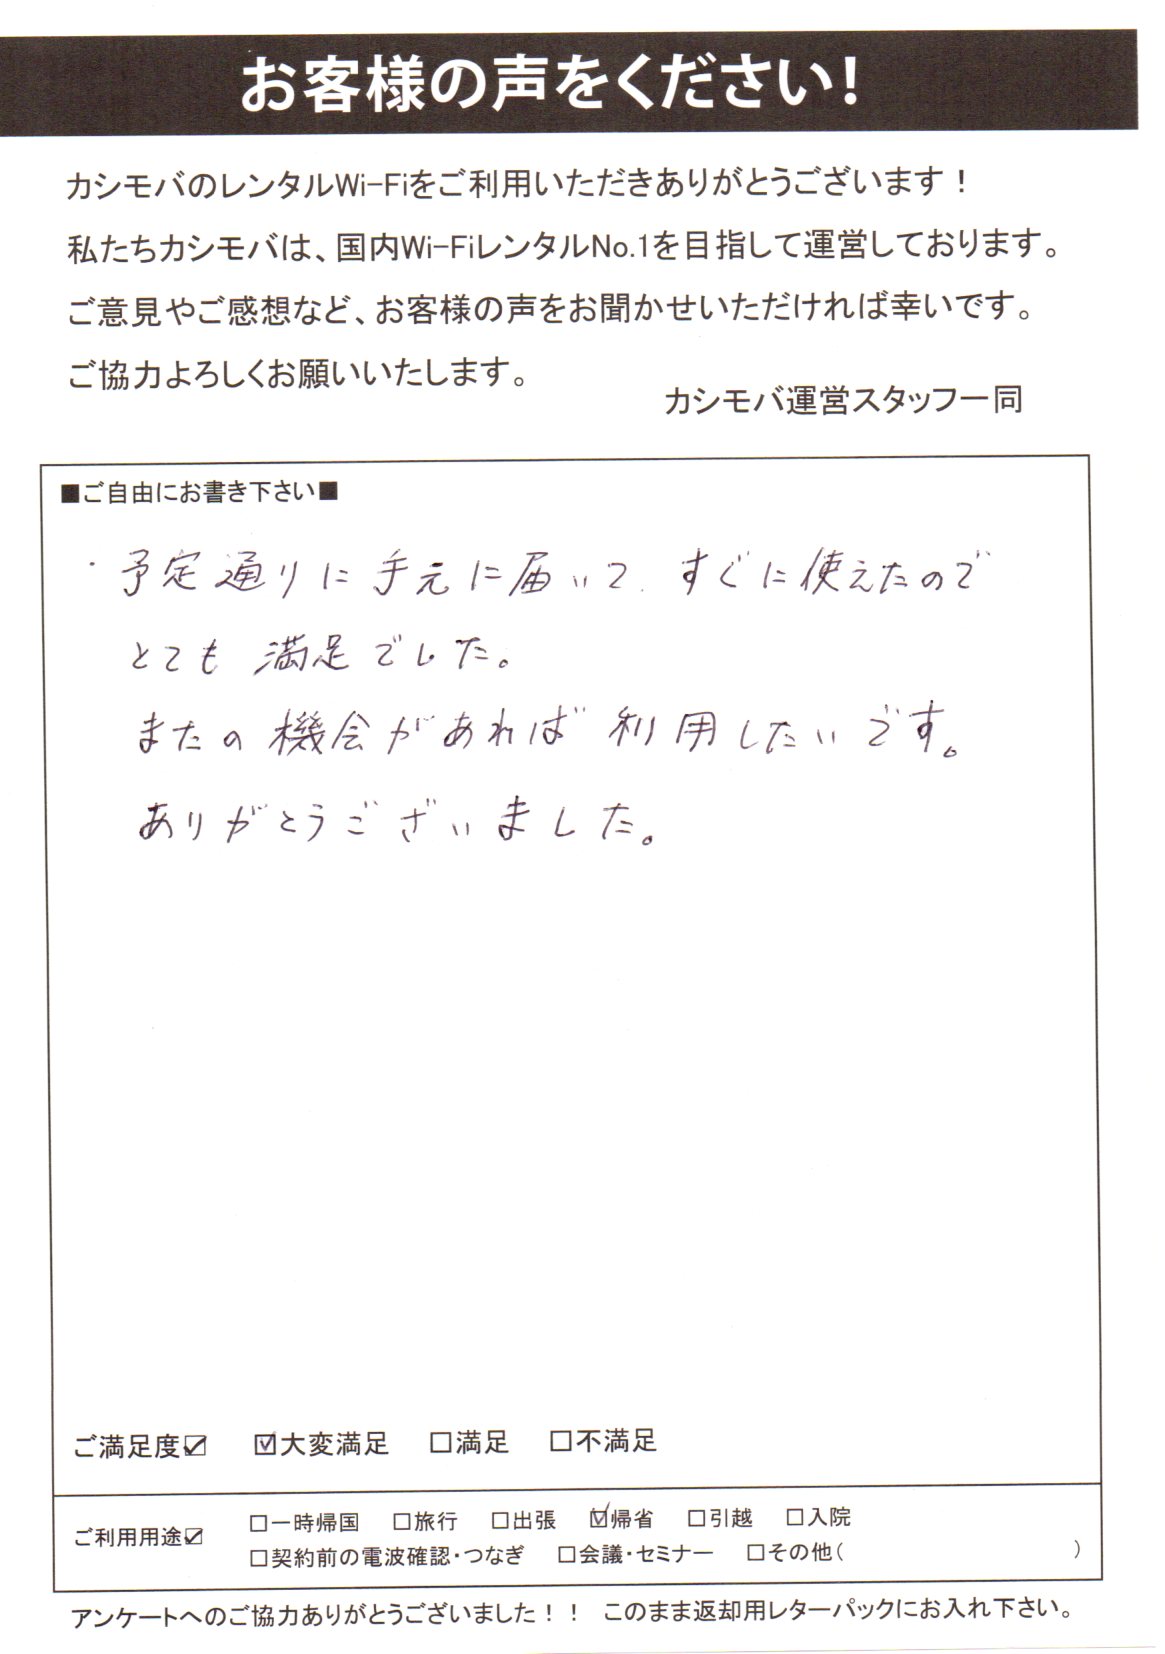 お客様の声をください!
カシモバのレンタルWi-Fiをご利用いただきありがとうございます!
私たちカシモバは、国内Wi-FiレンタルNo.1を目指して運営しております。
ご意見やご感想など、お客様の声をお聞かせいただければ幸いです。
ご協力よろしくお願いいたします。
カシモバ運営スタッフ一同
■ご自由にお書き下さい■
・予定通りに手元に届いて、すぐに使えたので
とても満足でした。
またの機会があれば利用したいです。
ありがとうございました。
ご満足度☑ ☑大変満足 □満足 □不満足
ご利用用途☑ □一時帰国 □旅行 □出張 ☑帰省 □引越 □入院
□契約前の電波確認・つなぎ □会議・セミナー □その他( )
アンケートへのご協力ありがとうございました!! このまま返却用レターパックにお入れ下さい。